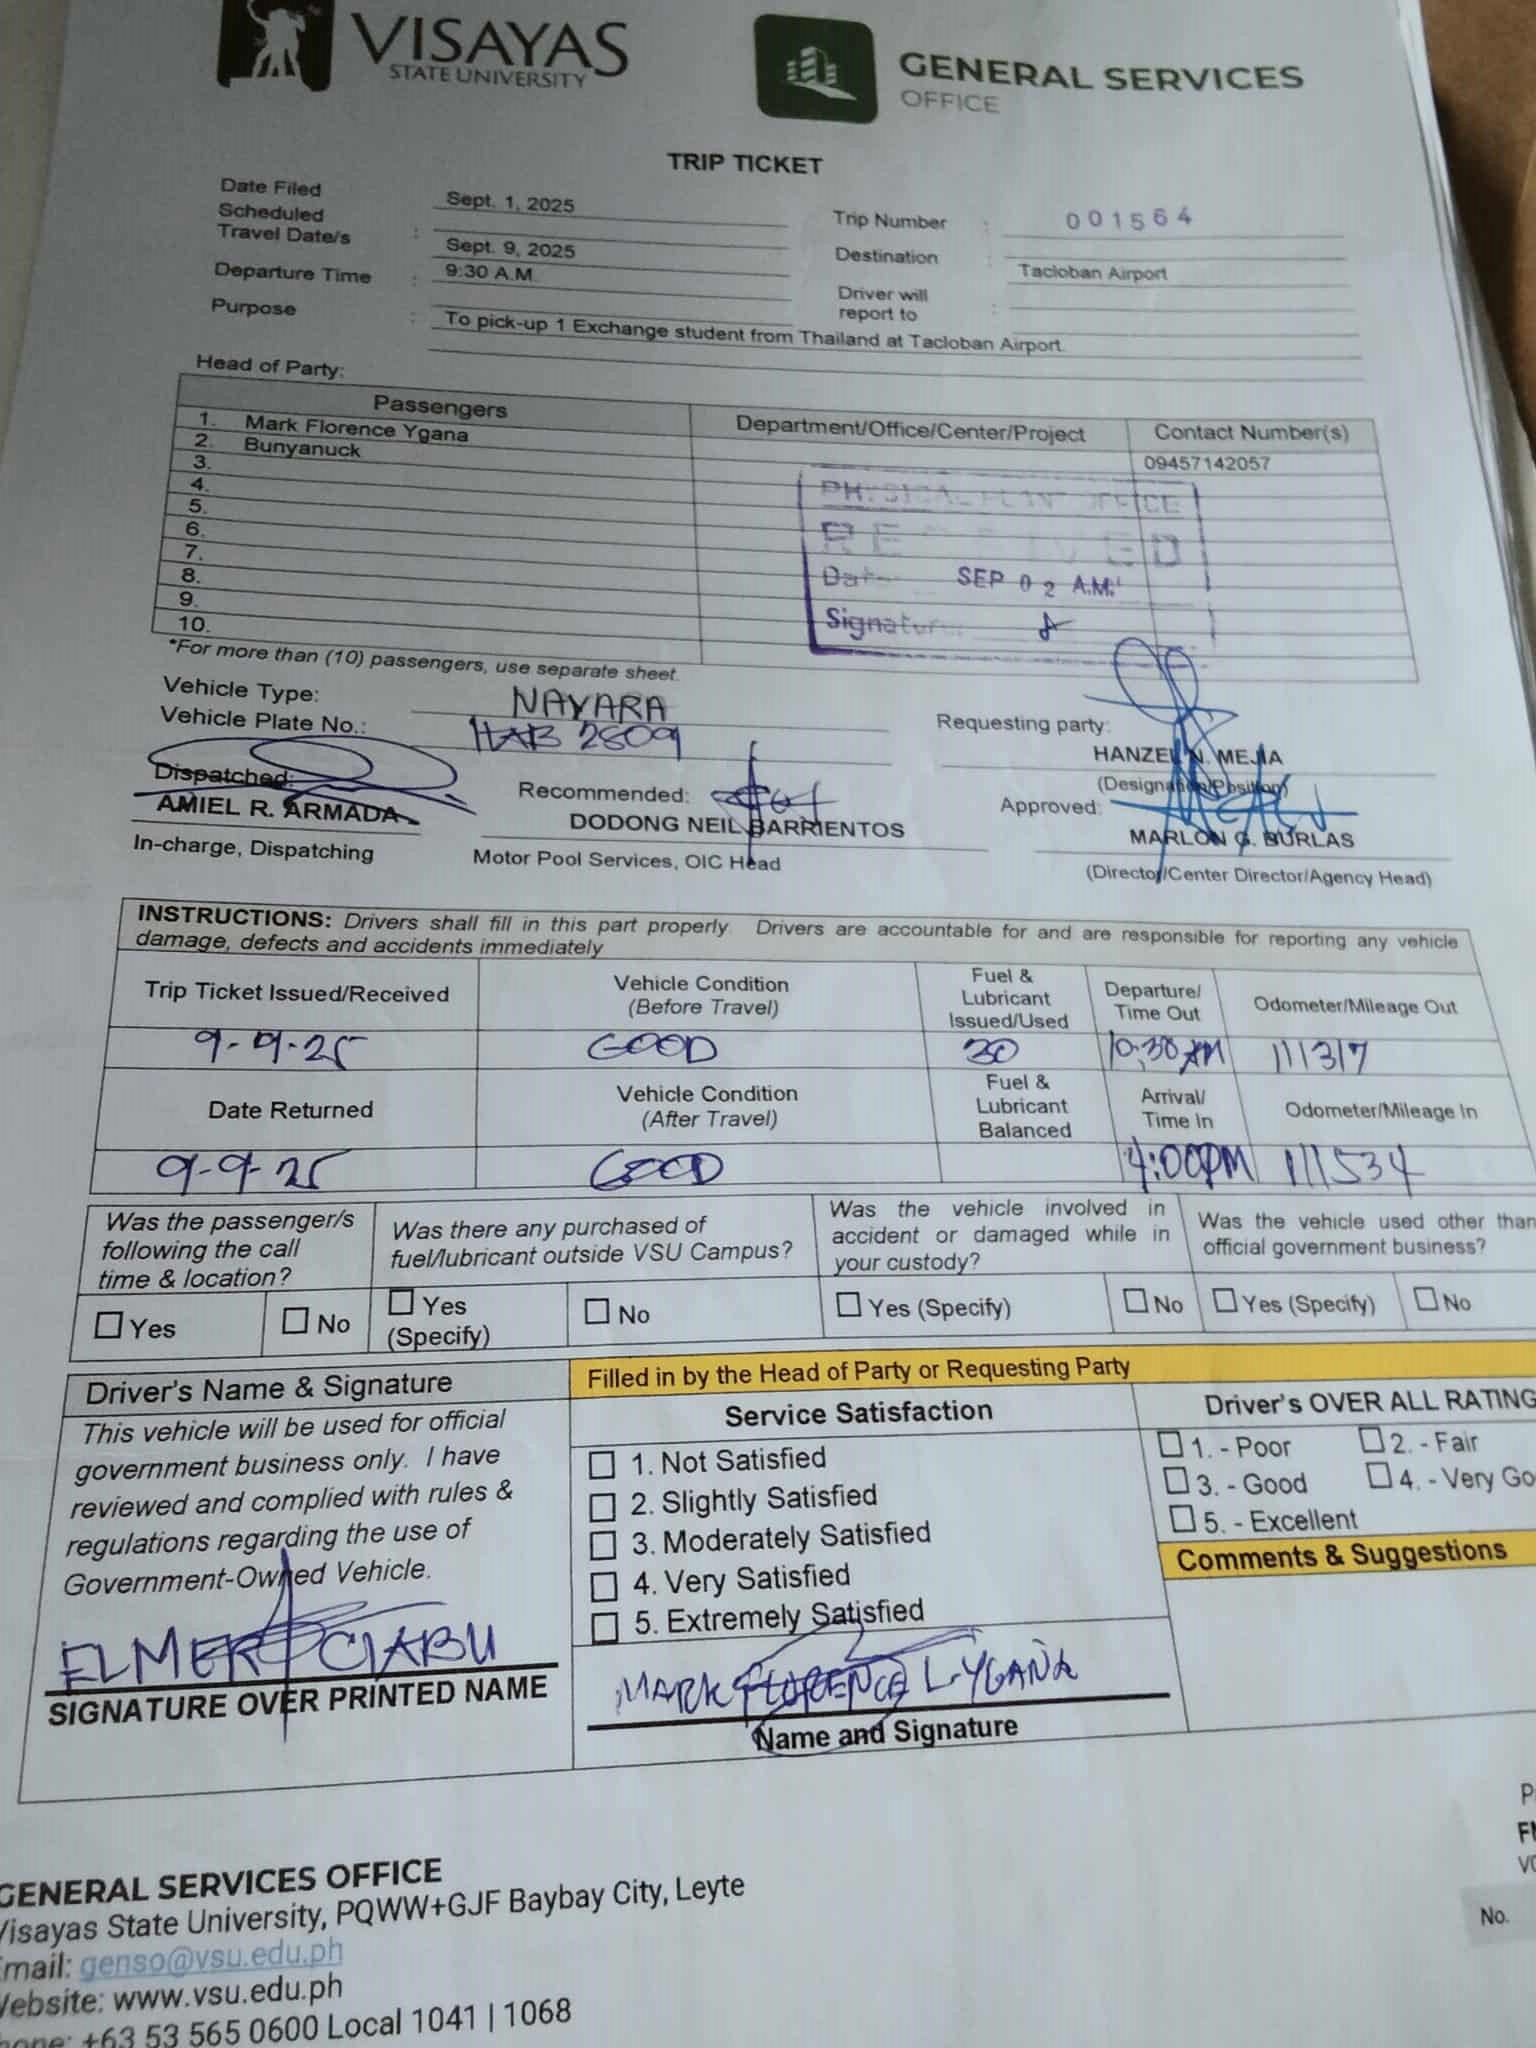 VISAYAS
STATE UNIVERSITY
GENERAL SERVICES
OFFICE
TRIP TICKET
Date Filed Sept. 1, 2025
Trip Number : 001564
Scheduled Travel Date/s : Sept. 9, 2025
Destination : Tacloban Airport
Departure Time : 9:30 A.M.
Driver will report to :
Purpose : To pick-up 1 Exchange student from Thailand at Tacloban Airport.
Head of Party:
Passengers Department/Office/Center/Project Contact Number(s)
1. Mark Florence Ygana 09457142057
2. Bunyanuck
3.
4.
5.
6.
7.
8.
9.
10.
PHYSICAL PLANT OFFICE
RECEIVED
Date SEP 02 A.M.
Signature:
*For more than (10) passengers, use separate sheet.
Vehicle Type: NAVARA
Vehicle Plate No.: HAB 2509
Requesting party:
HANZEL N. MEJIA
(Designation/Position)
Dispatched:
AMIEL R. ARMADA
In-charge, Dispatching
Recommended:
DODONG NEIL BARRIENTOS
Motor Pool Services, OIC Head
Approved:
MARLON G. BURLAS
(Director/Center Director/Agency Head)
INSTRUCTIONS: Drivers shall fill in this part properly. Drivers are accountable for and are responsible for reporting any vehicle
damage, defects and accidents immediately
Trip Ticket Issued/Received Vehicle Condition (Before Travel) Fuel & Lubricant Issued/Used Departure/ Time Out Odometer/Mileage Out
9-9-25 GOOD 30 10:30 AM 111317
Date Returned Vehicle Condition (After Travel) Fuel & Lubricant Balanced Arrival/ Time In Odometer/Mileage In
9-9-25 GOOD 4:00PM 111534
Was the passenger/s following the call time & location?
Was there any purchased of fuel/lubricant outside VSU Campus?
Was the vehicle involved in accident or damaged while in your custody?
Was the vehicle used other than official government business?
Yes No Yes (Specify) No Yes (Specify) No Yes (Specify) No
Driver's Name & Signature
This vehicle will be used for official
government business only. I have
reviewed and complied with rules &
regulations regarding the use of
Government-Owned Vehicle.
ELMER CIABU
SIGNATURE OVER PRINTED NAME
Filled in by the Head of Party or Requesting Party
Service Satisfaction
1. Not Satisfied
2. Slightly Satisfied
3. Moderately Satisfied
4. Very Satisfied
5. Extremely Satisfied
MARK FLORENCE L. YGANA
Name and Signature
Driver's OVER ALL RATING
1. - Poor 2. - Fair
3. - Good 4. - Very Go
5. - Excellent
Comments & Suggestions
GENERAL SERVICES OFFICE
Visayas State University, PQWW+GJF Baybay City, Leyte
Email: genso@vsu.edu.ph
Website: www.vsu.edu.ph
Phone: +63 53 565 0600 Local 1041 | 1068
No.